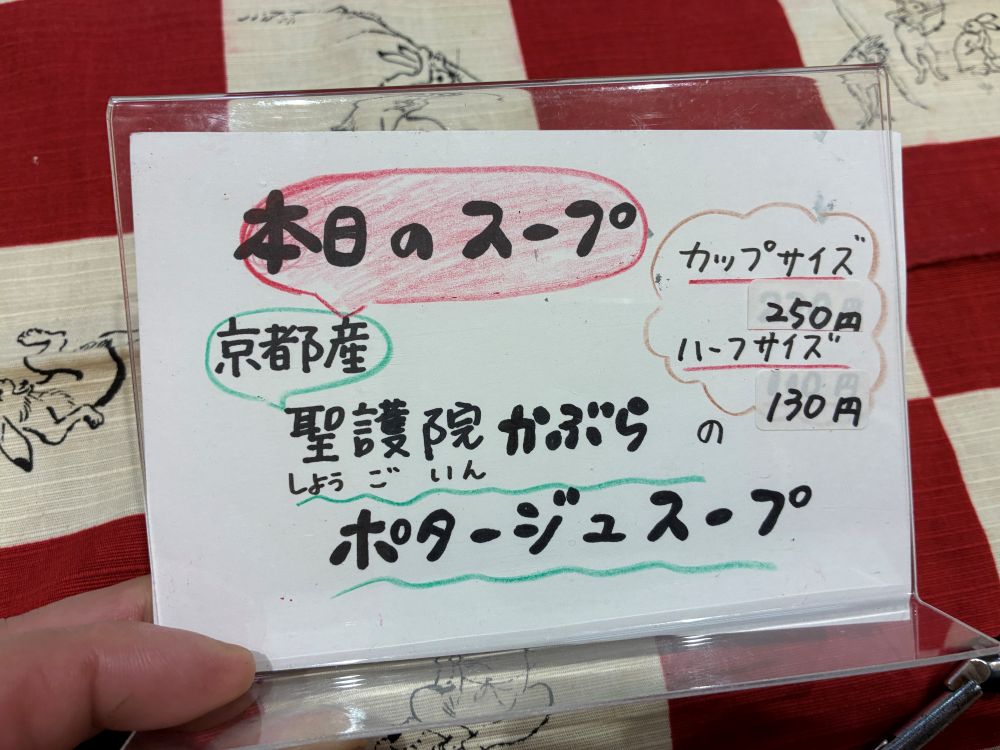 本日のスープ
カップサイズ
250円
ハーフサイズ
130円
京都産
聖護院かぶらの
しょうごいん
ポタージュスープ